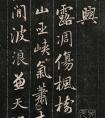 興
露凋傷楓樹
山巫峽氣蕭
間波浪兼天